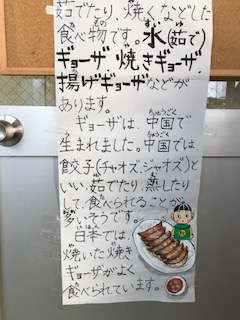 茹でたり、焼くなどした
食べ物です。水(茹で)
ギョーザ、焼きギョーザ、
揚げギョーザなどが
あります。
ギョーザは、中国で
生まれました。中国では、
餃子(チャオズ、ジャオズ)と
いい、茹でたり、蒸したり
して食べられることが
多いそうです。
日本では、
焼いた焼き
ギョーザがよく
食べられています。